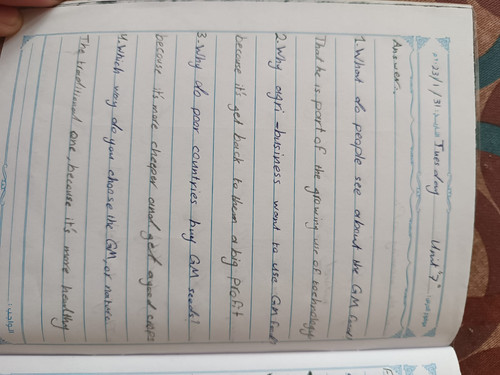 2023/1/31 Tuesday Unit "7"
Answer.
1. What do people see about the GM food
That he is part of the growing use of technology
2. Why agri-business want to use GM food
because it's get back to them a big Profit
3. Why do poor countries buy GM seeds?
because it's more cheeper and get a good crops
4. Which way do you choose the GM, or nature
The traditional one, because it's more healthy
الواجب: